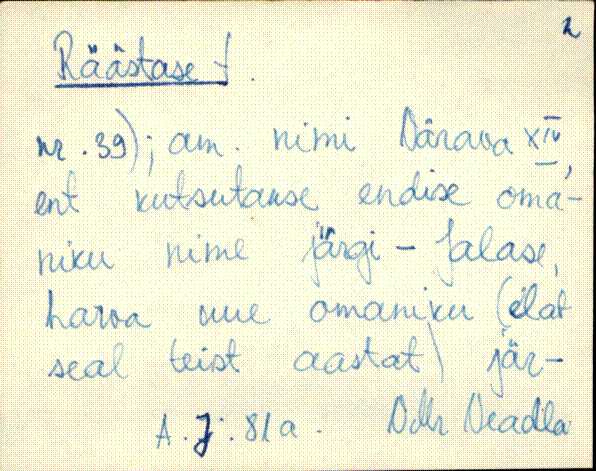 2
Räästase t.
nr. 39); am. nimi Värava XIV,
ent kutsutakse endise oma-
niku nime järgi – Jalase,
harva uue omaniku (elat
seal teist aastat) jär-
A. J. 81a.